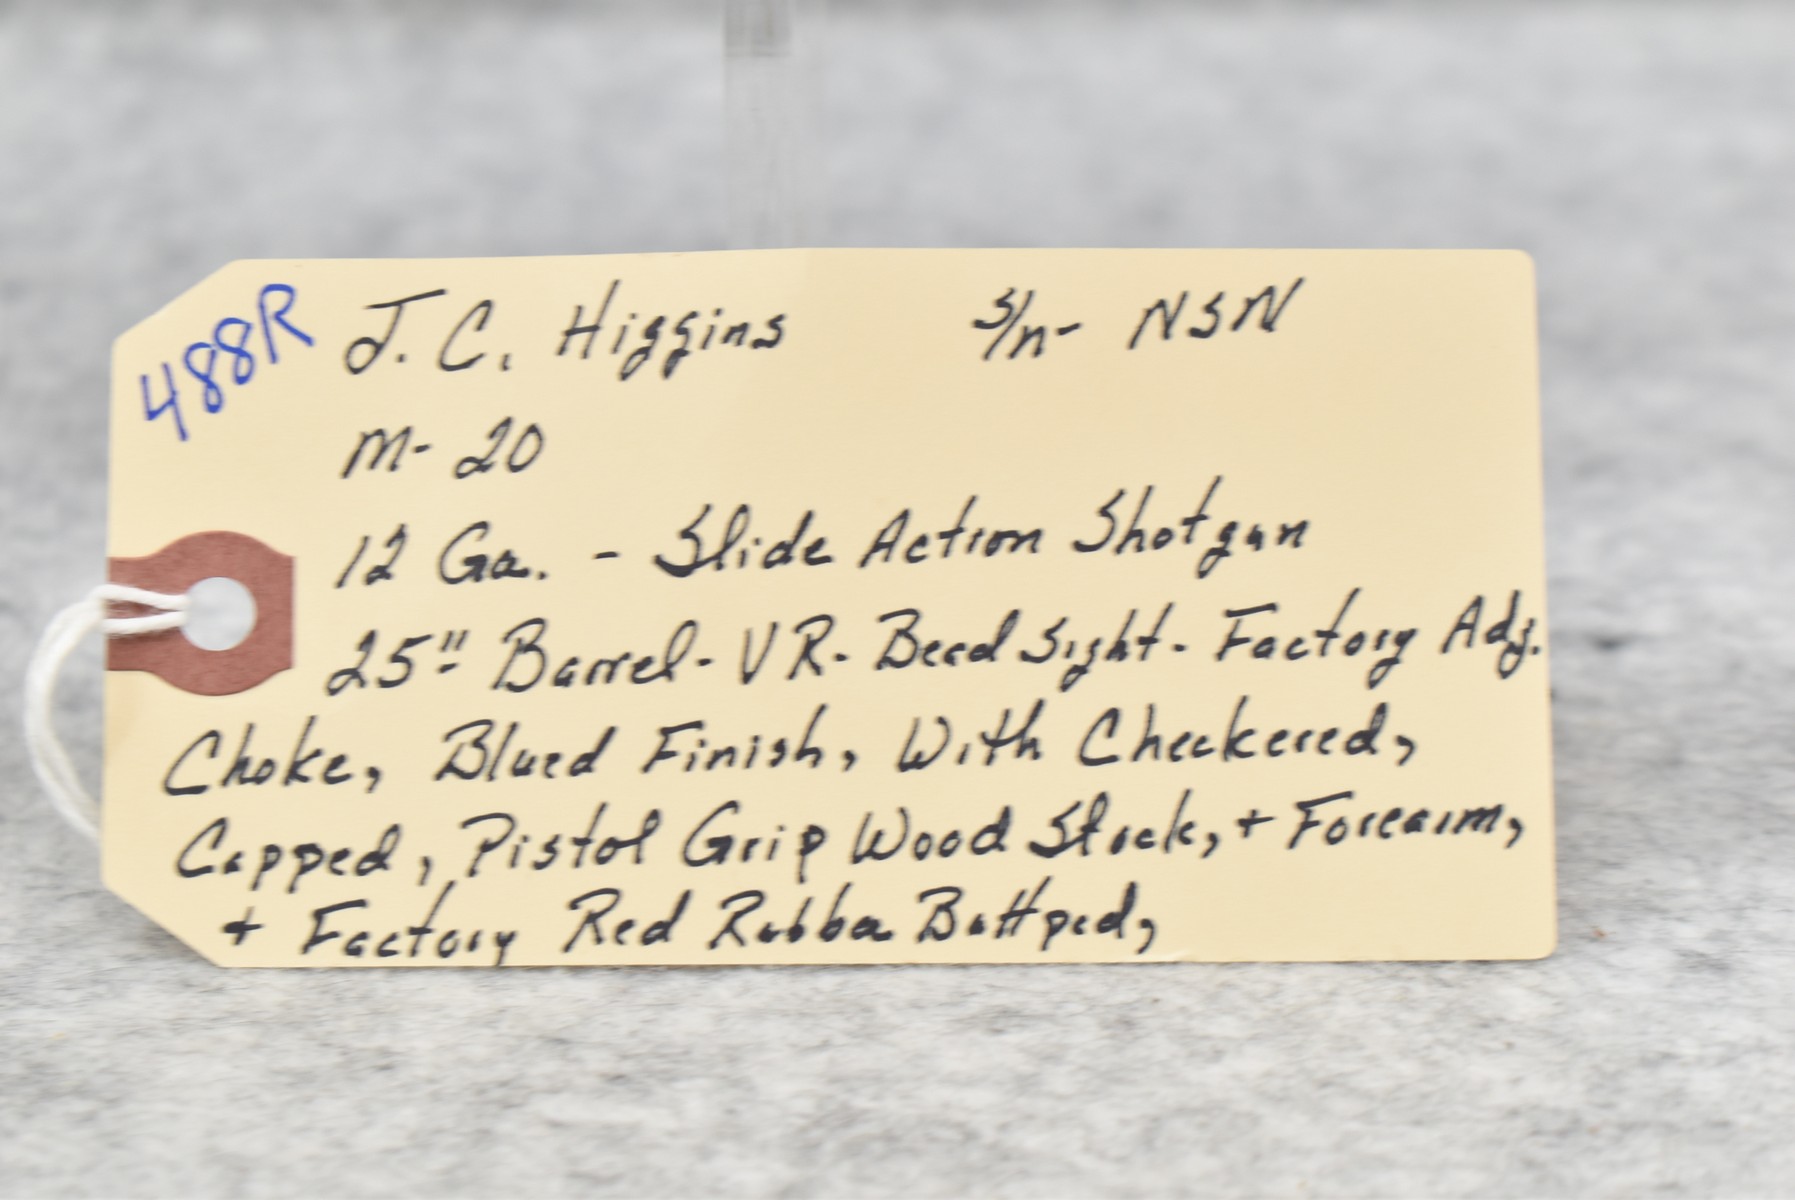 488R
J. C. Higgins S/n- NSN
M- 20
12 Ga. - Slide Action Shotgun
25" Barrel- VR- Bead Sight- Factory Adj.
Choke, Blued Finish, With Checkered,
Capped, Pistol Grip Wood Stock, + Forearm,
+ Factory Red Rubber Buttpad,